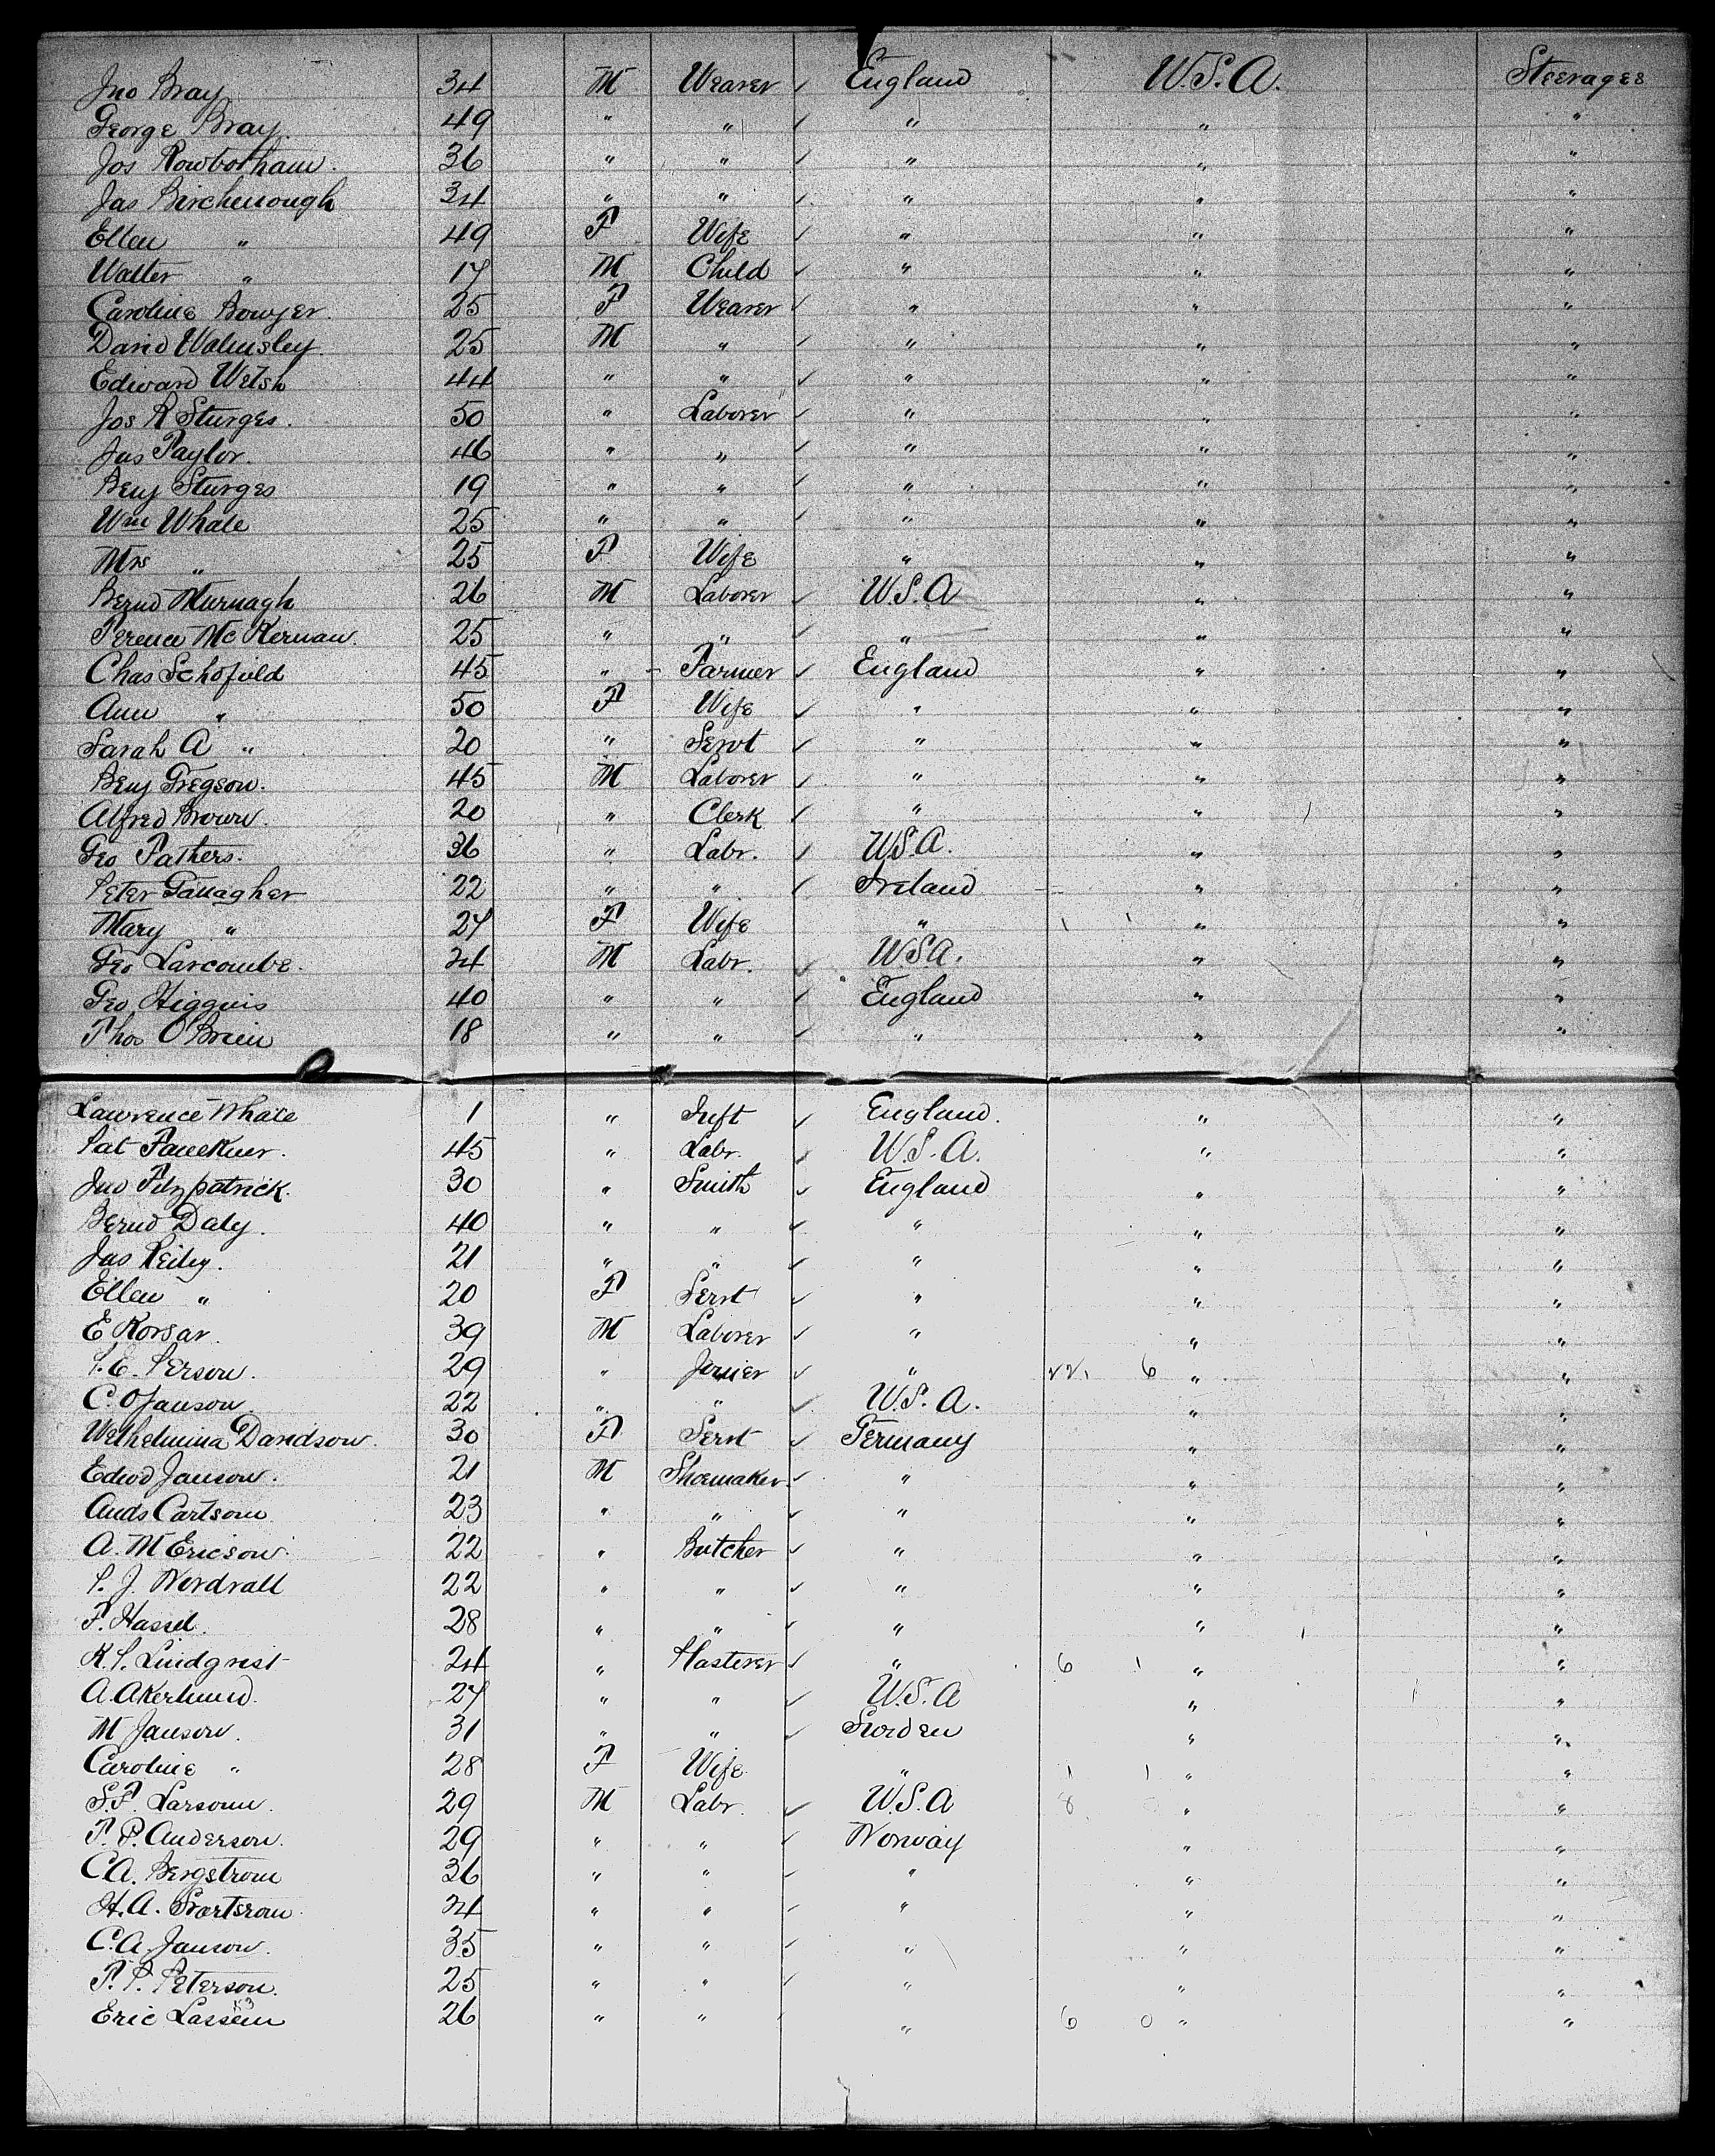 Jno Bray 34 M Weaver ✓ England U.S.A. Steerages
George Bray. 49 " " ✓ " " "
Jos Rowbotham. 36 " " ✓ " " "
Jas Birchenough 34 " " ✓ " " "
Ellen " 49 F Wife ✓ " " "
Walter " 17 M Child ✓ " " "
Caroline Bowyer. 25 F Weaver ✓ " " "
David Walmsley. 25 M " ✓ " " "
Edward Welsh 44 " " ✓ " " "
Jos R Sturges. 50 " Laborer ✓ " " "
Jas Taylor. 46 " " ✓ " " "
Benj Sturges 19 " " ✓ " " "
Wm Whale 25 " " ✓ " " "
Mrs " 25 F Wife " " "
Bernd Murnagh 26 M Laborer ✓ U.S.A " "
Terence McKernan. 25 " " ✓ " " "
Chas Schofield 45 " Farmer ✓ England " "
Ann " 50 F Wife ✓ " " "
Sarah A " 20 " Servt ✓ " " "
Benj Gregson. 45 M Laborer ✓ " " "
Alfred Brown. 20 " Clerk ✓ " " "
Geo Fathers. 36 " Labr. ✓ U.S.A. " "
Peter Gallagher 22 " " ✓ Ireland " "
Mary " 27 F Wife " " "
Geo Larcombe. 34 M Labr. ✓ U.S.A. " "
Geo Higgins 40 " " ✓ England " "
Thos O'Brien 18 " " ✓ " " "
Lawrence Whale 1 " Inft ✓ England. " "
Pat Faulkner. 45 " Labr. ✓ U.S.A. " "
Jno Fitzpatrick. 30 " Smith ✓ England " "
Bernd Daly. 40 " " ✓ " " "
Jas Reiley. 21 " " ✓ " " "
Ellen " 20 F Servt ✓ " " "
E Korsar. 39 M Laborer ✓ " " "
P.E. Person. 29 " Joiner ✓ " 6 " "
C. O Janson. 22 " " ✓ U.S.A. " "
Wilhelmina Davidson. 30 F Servt ✓ Germany " "
Edwd Janson. 21 M Shoemaker ✓ " " "
Ands Carlson 23 " " ✓ " " "
A. M Ericson. 22 " Butcher ✓ " " "
P. J. Nordvall 22 " " ✓ " " "
F. Hassel. 28 " " ✓ " " "
K.P. Lindqvist 24 " Plasterer ✓ " 6 1 " "
A. Akerlund. 27 " " ✓ U.S.A " "
M Janson. 31 " " ✓ Sweden " "
Caroline " 28 F Wife " 1 1 " "
S.F. Larsonn. 29 M Labr. ✓ U.S.A 8 0 " "
F. P. Anderson. 29 " " ✓ Norway " "
C.A. Bergstrom 36 " " ✓ " " "
H.A. 24 " " ✓ " " "
C.A. Janson. 35 " " ✓ " " "
F. P. Peterson. 25 " " ✓ " " "
Eric Lassein 26 " " " 6 0 " "